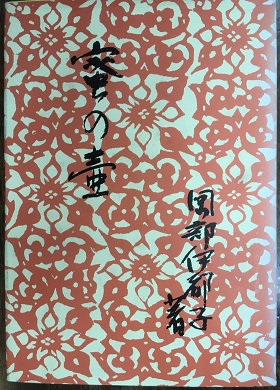 蜜の壷
岡部伊都子
著